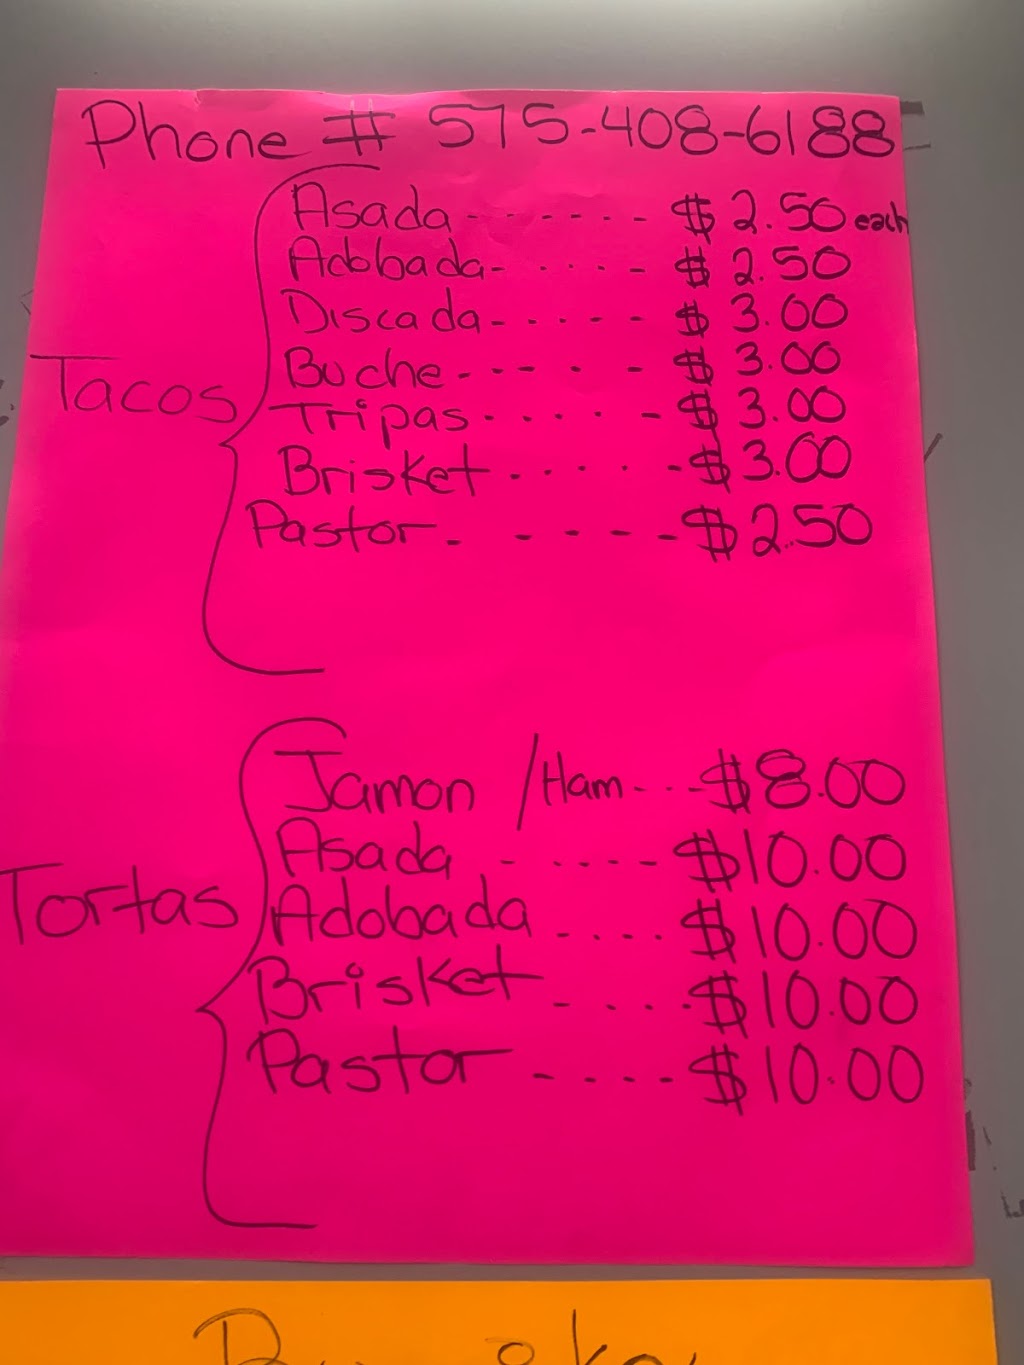 Phone # 575-408-6188
Tacos
Asada - - - - - - - $ 2.50 each
Adobada - - - - - $ 2.50
Discada - - - - - $ 3.00
Buche - - - - - - $ 3.00
Tripas - - - - - $ 3.00
Brisket - - - - - $3.00
Pastor - - - - - $2.50
Tortas
Jamon / Ham - - - $8.00
Asada - - - - - $10.00
Adobada - - - - $10.00
Brisket - - - - $10.00
Pastor - - - - $10.00